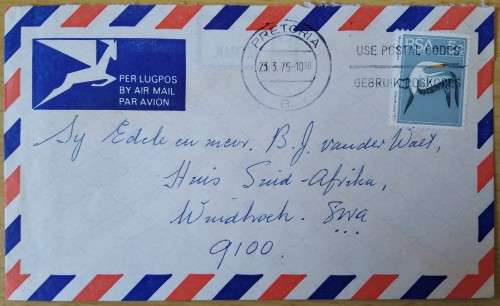 PER LUGPOS
BY AIR MAIL
PAR AVION
PRETORIA
23.3.75-10
USE POSTAL CODES
GEBRUIK POSKODES
RSA
Sy Edele en mevr. B. J. van der Walt,
Huis Suid-Afrika,
Windhoek. SWA
9100.